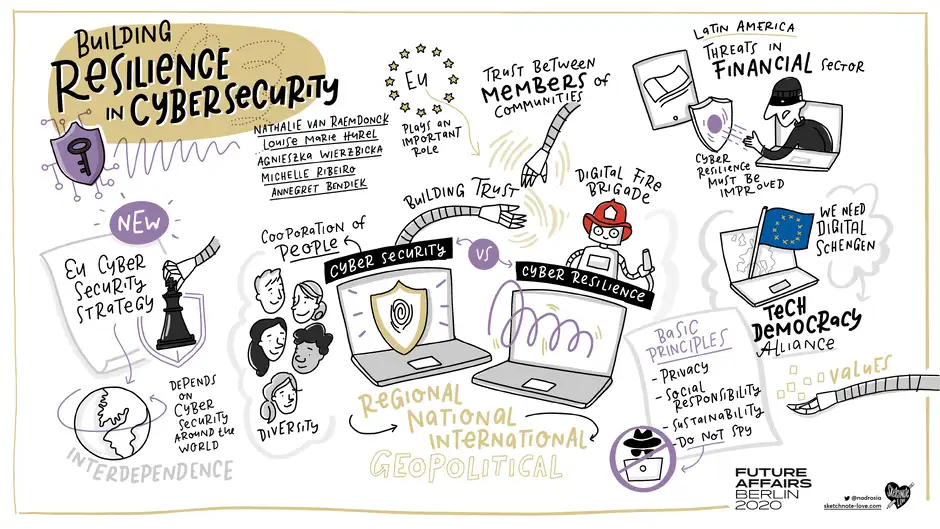 BUILDING
RESILIENCE
IN CYBERSECURITY
NATHALIE VAN RAEMDONCK
LOUISE MARIE HUREL
AGNIESZKA WIERZBICKA
MICHELLE RIBEIRO
ANNEGRET BENDIEK
EU
PLAYS AN
IMPORTANT
ROLE
TRUST BETWEEN
MEMBERS OF
COMMUNITIES
LATIN AMERICA
THREATS IN
FINANCIAL SECTOR
CYBER
RESILIENCE
MUST BE
IMPROVED
NEW
EU CYBER
SECURITY
STRATEGY
DEPENDS
ON
CYBER
SECURITY
AROUND THE
WORLD
INTERDEPENDENCE
COOPERATION OF
PEOPLE
DIVERSITY
BUILDING TRUST
CYBER SECURITY
VS
DIGITAL FIRE
BRIGADE
CYBER RESILIENCE
REGIONAL
NATIONAL
INTERNATIONAL
GEOPOLITICAL
BASIC
PRINCIPLES
- PRIVACY
- SOCIAL
RESPONSIBILITY
- SUSTAINABILITY
- DO NOT SPY
WE NEED
DIGITAL
SCHENGEN
TECH
DEMOCRACY
ALLIANCE
VALUES
FUTURE
AFFAIRS
BERLIN
2020
@nadrosia
sketchnote-love.com
Sketchnote
Love